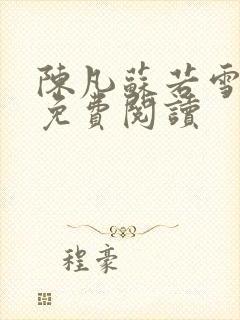 陳凡蘇若雪
免費閱讀
程豪